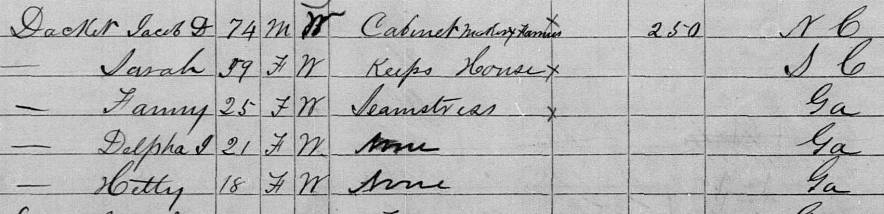 Dacket Jacob D 74 M W Cabinet x 250 N C
— Sarah 59 F W Keeps House x S C
— Fanny 25 F W Seamstress x Ga
— Delpha J 21 F W None Ga
— Hetty 18 F W None Ga